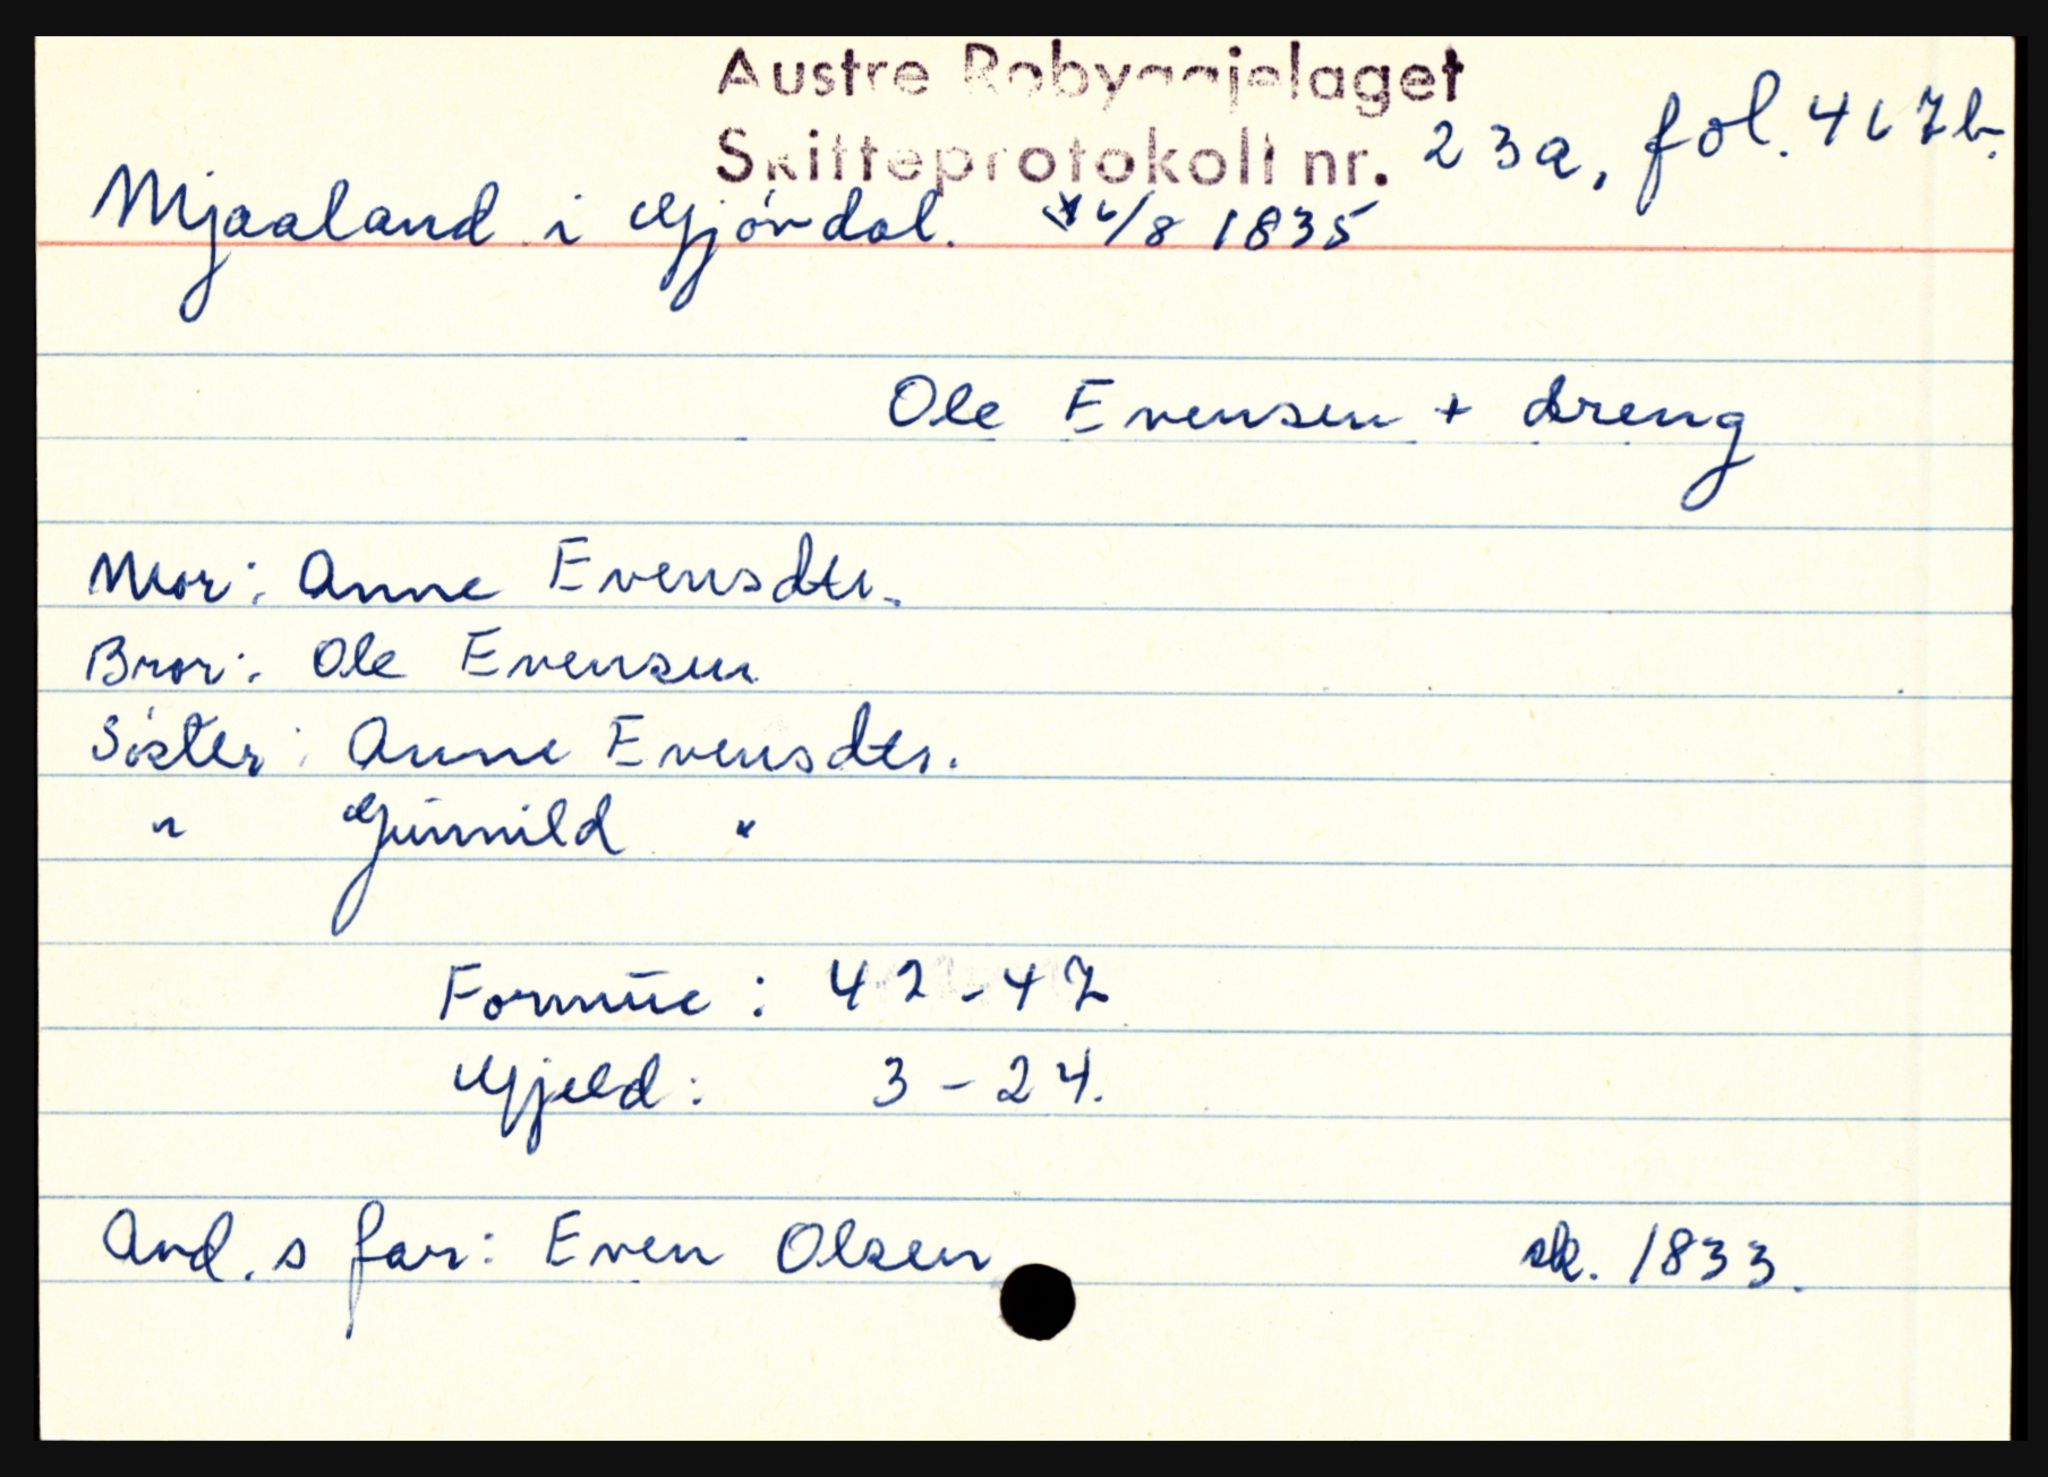 Austre Robyggjelaget
Skifteprotokoll nr. 23a, fol. 467b.
Mjaaland i Gjövdal. 6/8 1835
Ole Evensen + dreng
Mor: Anne Evensdtr.
Bror: Ole Evensen
Söster: Anne Evensdtr.
" Gunnild "
Formue: 42-47
Gjeld: 3-24.
Avd. s far: Even Olsen sk. 1833.